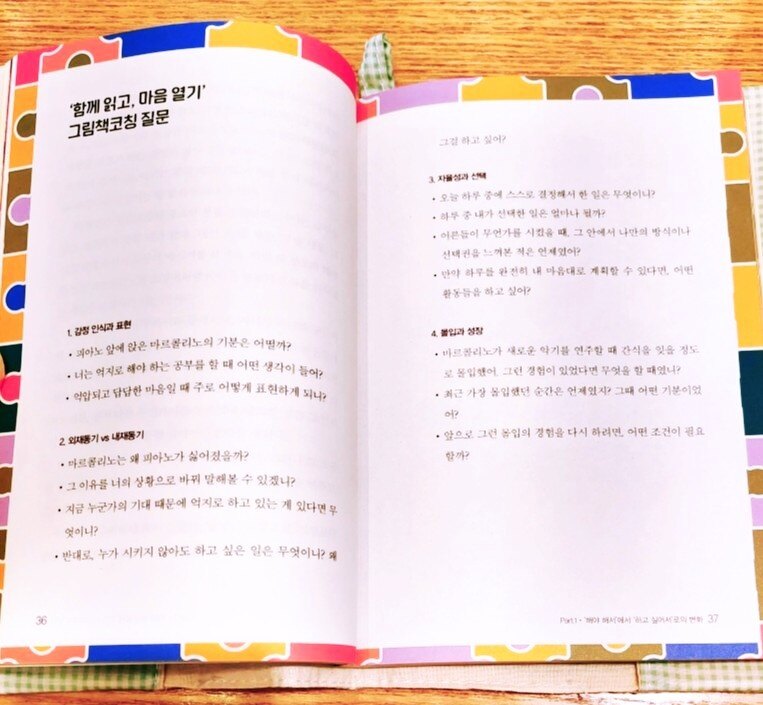 ‘함께 읽고, 마음 열기’
그림책코칭 질문
1. 감정 인식과 표현
• 피아노 앞에 앉은 마르콜리노의 기분은 어떨까?
• 너는 억지로 해야 하는 공부를 할 때 어떤 생각이 들어?
• 억압되고 답답한 마음일 때 주로 어떻게 표현하게 되니?
2. 외재동기 vs 내재동기
• 마르콜리노는 왜 피아노가 싫어졌을까?
• 그 이유를 너의 상황으로 바꿔 말해볼 수 있겠니?
• 지금 누군가의 기대 때문에 억지로 하고 있는 게 있다면 무
엇이니?
• 반대로, 누가 시키지 않아도 하고 싶은 일은 무엇이니? 왜
36
그걸 하고 싶어?
3. 자율성과 선택
• 오늘 하루 중에 스스로 결정해서 한 일은 무엇이니?
• 하루 중 내가 선택한 일은 얼마나 될까?
• 어른들이 무언가를 시켰을 때, 그 안에서 나만의 방식이나
선택권을 느껴본 적은 언제였어?
• 만약 하루를 완전히 내 마음대로 계획할 수 있다면, 어떤
활동들을 하고 싶어?
4. 몰입과 성장
• 마르콜리노가 새로운 악기를 연주할 때 간식을 잊을 정도
로 몰입했어, 그런 경험이 있었다면 무엇을 할 때였니?
• 최근 가장 몰입했던 순간은 언제였지? 그때 어떤 기분이었
어?
• 앞으로 그런 몰입의 경험을 다시 하려면, 어떤 조건이 필요
할까?
Part 1 • ‘해야 해서’에서 ‘하고 싶어서’로의 변화 37